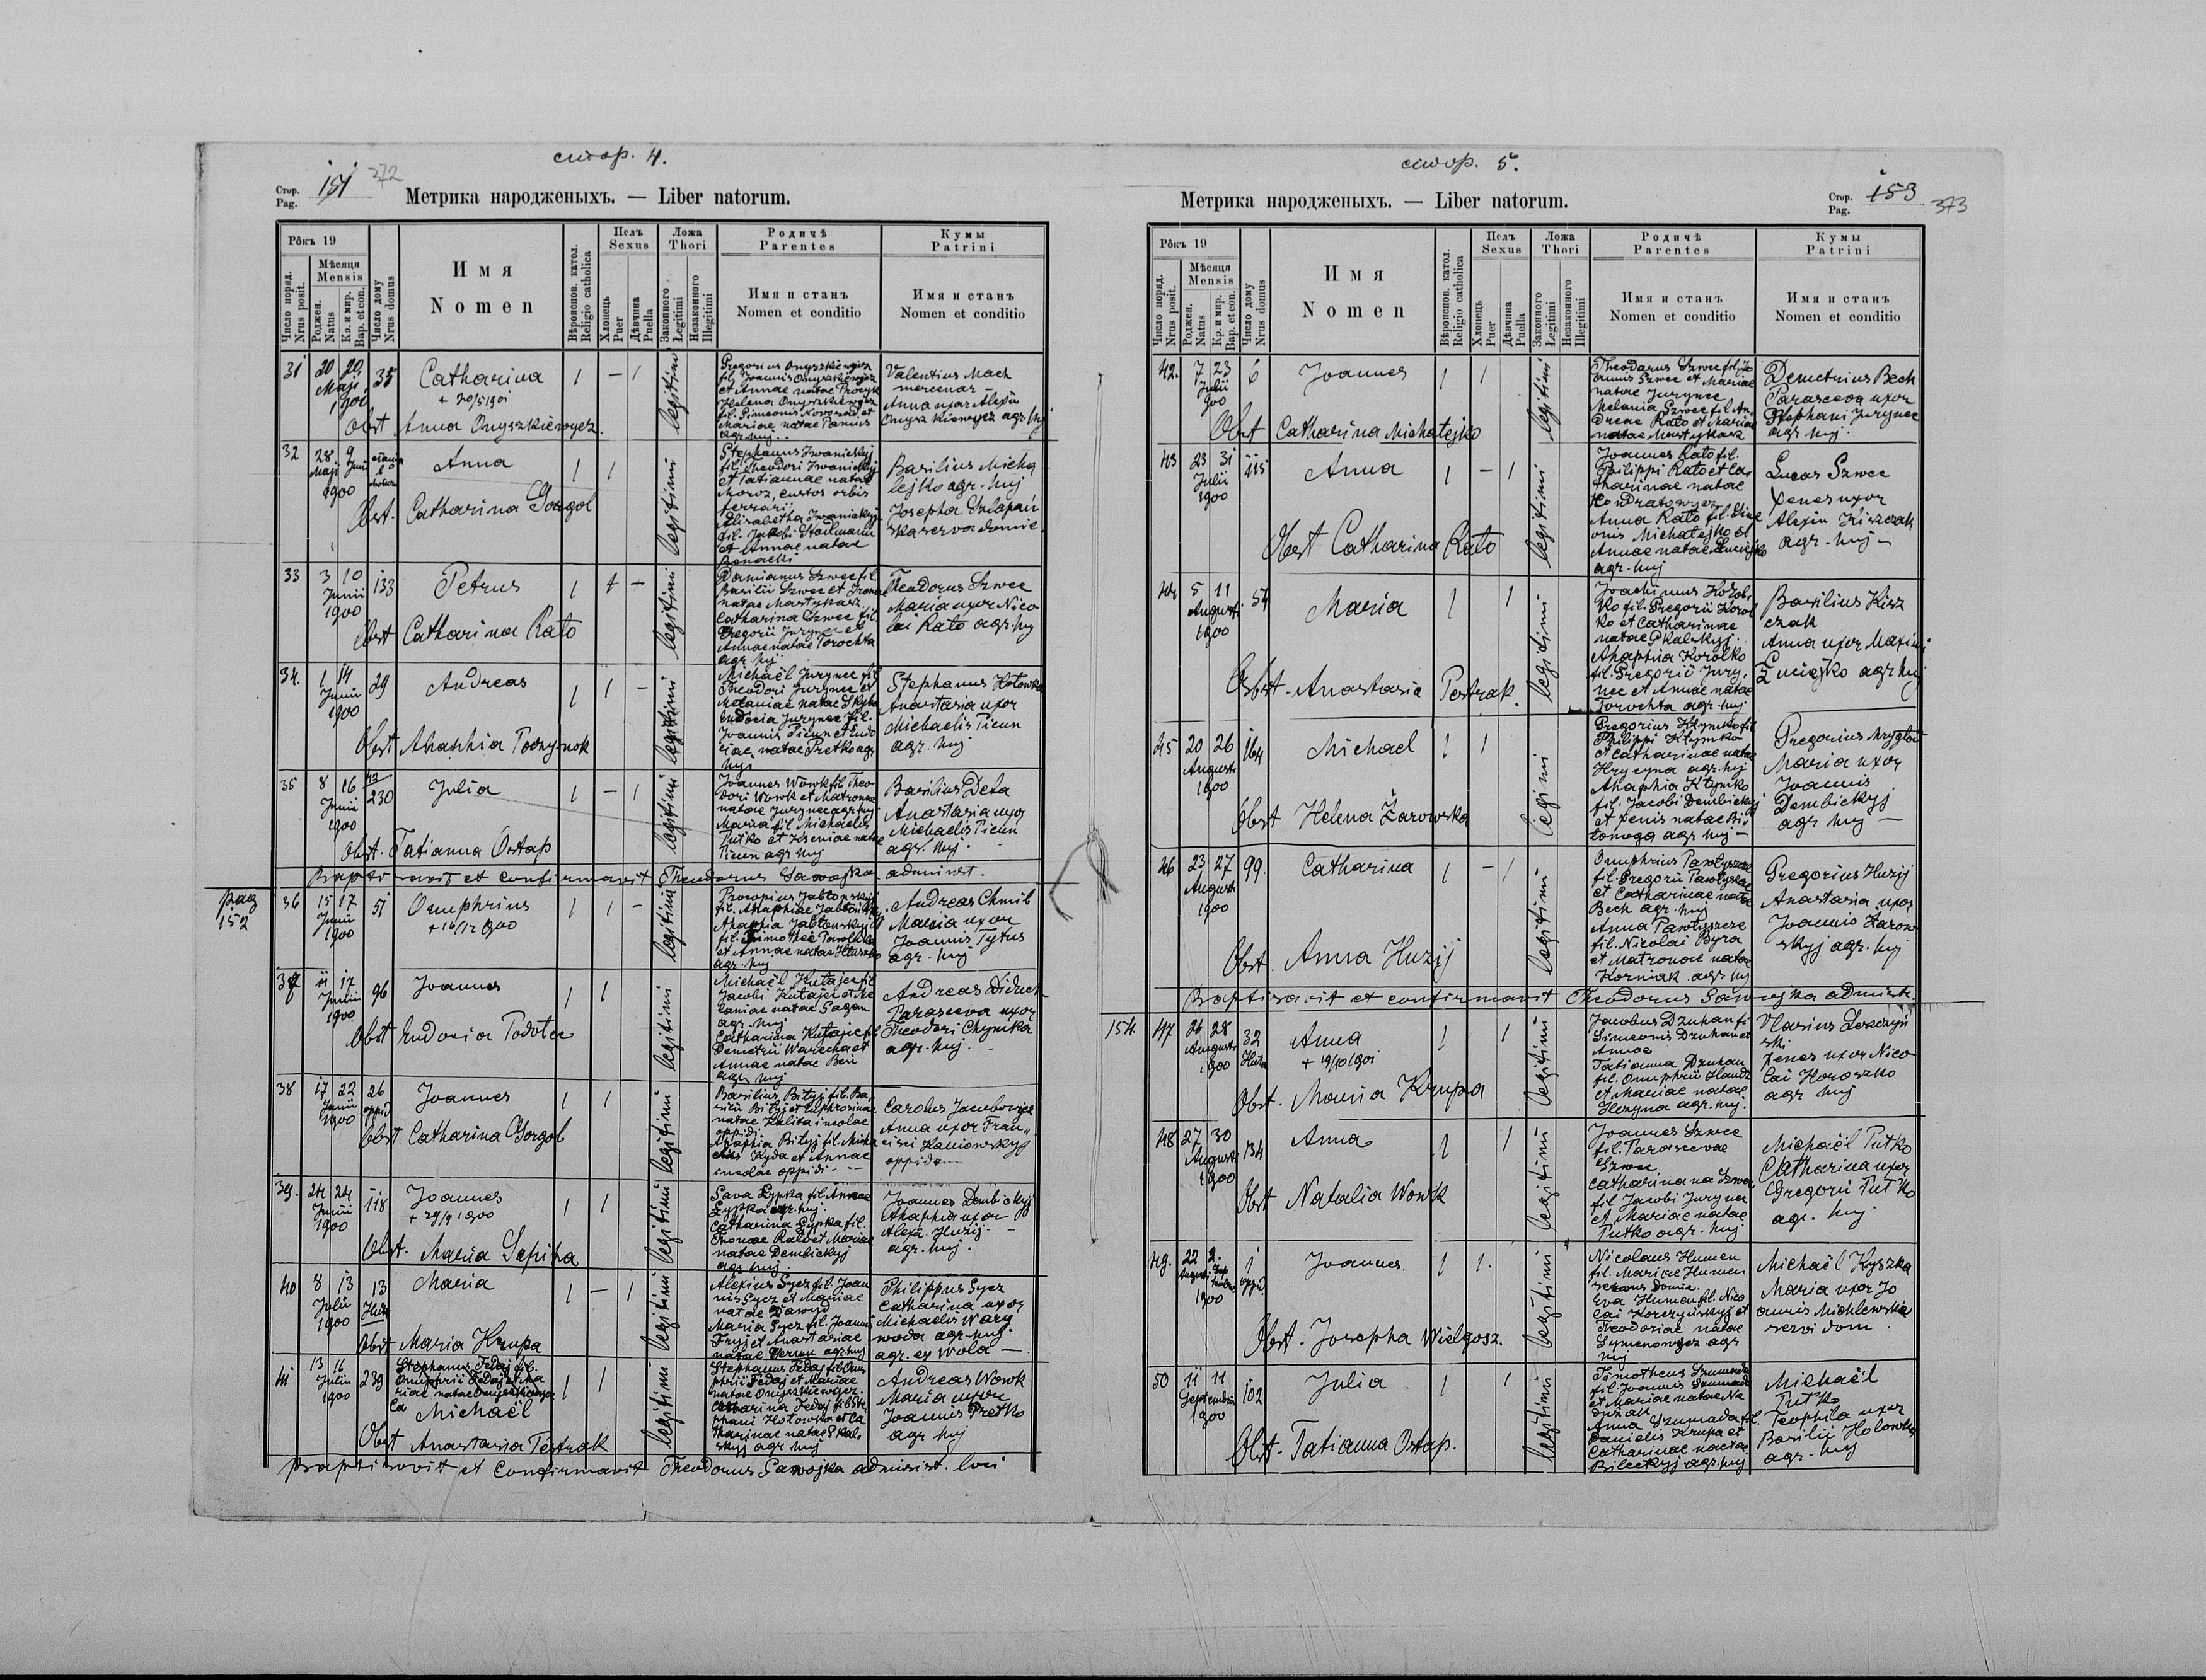 стор. 4.
Стор. Pag. 151 372
Метрика народженыхъ. — Liber natorum.
Рôкъ 19
Число поряд. Nrus posit.
Мѣсяця Mensis
Роджен. Natus
Кр. и мир. Bap. et con.
Число дому Nrus domus
Имя Nomen
Вѣроиспов. катол. Religio catholica
Полъ Sexus
Хлопець Puer
Дѣвчина Puella
Ложа Thori
Законного Legitimi
Незаконного Illegitimi
Родичѣ Parentes
Имя и станъ Nomen et conditio
Кумы Patrini
Имя и станъ Nomen et conditio
31 20 20 Maji 1900 35 Catharina 1 – 1 legitimi
+ 20/5 1901
Obst Anna Onyszkiewycz.
Gregorius Onyszkiewycz
fil. Joannis Onyszkiewycz
et Annae natae
Helena Onyszkiewycz
fil. Simeonis et
Mariae natae
agr. huj.
Valentius Mach
mercenar –
Anna uxor Alexii
Onyszkiewycz agr. huj
32 28 Maji 9 Junii 1900 Anna 1 1 legitimi
Obst. Catharina Gorgol
Stephanus Iwanickyj
fil. Theodori Iwanickyj
et Tatiannae natae
Moroz, custos orbis
ferrarii,
Elisabetha Iwanickyj
fil. Jakobi
et Annae natae
Banacki
Basilius Micha
lejko agr. huj
Josepha Szlapań
ska serva domine
33 3 10 Junii 1900 133 Petrus 1 + – legitimi
Obst Catharina Rato
Damianus Szwec fil.
Basilii Szwec et Irenae
natae Martykasz,
Catharina Szwec fil.
Gregorii Jurynec et
Annae natae Torochta
agr. huj
Theodorus Szwec
Maria uxor Nico
lai Rato agr. huj
34. 1 14 Junii 1900 29 Andreas 1 1 – legitimi
Obst Ahaphia
Michaël Jurynec fil
Theodori Jurynec et
Melaniae natae
Eudocia Jurynec fil.
Joannis Picun et Eudo
ciae natae Pretko agr
huj
Stephanus Hołowka
Anastasia uxor
Michaelis Picun
agr. huj
35 8 16 Junii 1900 43/230 Julia 1 – 1 legitimi
Obst. Tatianna Ostap
Joannes Wowk fil. Theo
dori Wowk et Matronae
natae Jurynec agr. huj
Maria fil. Michaelis
Tutko et Xseniae natae
Picun agr huj
Basilius Deka
Anastasia uxor
Michaelis Picun
agr. huj.
Baptisavit et confirmavit Theodorus Sawojka administ.
pag 152
36 15 17 Junii 1900 51 Onuphrius 1 1 – legitimi
+ 16/12 1900
Procopius Jabłonskyj
fil. Ahaphiae Jabłonskyj
Ahaphia Jabłonskyj
fil. Timothei
et Annae natae
agr. huj
Andreas Chmil
Maria uxor
Joannis Tytus
agr. huj
37 11 17 Junii 1900 96 Joannes 1 1 legitimi
Obst Eudocia Podolec
Michaël Kutajec fil
Jacobi Kutajec et Me
laniae natae Gagan
agr. huj
Catharina Kutajec fil
Demetrii Warecha et
Annae natae Ben
agr. huj
Andreas Diduch
Parasceva uxor
Theodori Chymka
agr. huj. –
38 17 22 Junii 1900 26 oppid Joannes 1 1 legitimi
Obst Catharina Gorgol
Basilius Bityj fil. Ba,
silii Bityj et Euphrosinae
natae Kalita incolae
oppidi
Ahaphia Bityj fil. Micha
elis Hyda et Annae
incolae oppidi – –
Carolus Jacubowicz
Anna uxor Fran„
cisci Kaniowskyj
oppidan
39. 24 24 Junii 1900 118 Joannes 1 1 legitimi
+ 29/9 1900
Obst. Maria Sepiha
Sava Łypka fil Annae
Łypka agr. huj.
Catharina Łypka fil.
Thomae Rato et Mariae
natae Dembickyj
agr. huj.
Joannes Dembickyj
Ahaphia uxor
Alexii Huzij. –
agr. huj.
40 8 13 Julii 1900 13 Huta Maria 1 – 1 legitimi
Obst Maria Krupa
Alexius Sycz fil. Joan
nis Sycz et Mariae
natae Dawyd
Maria Sycz fil. Joannis
Fryj et Anastasiae
natae agr. huj
Philippus Sycz
Catharina uxor
Michaelis Wary
woda agr. huj.
agr. ex Wola –
41 13 16 Julii 1900 239 Stephanus Fedaj fil.
Onuphrii Fedaj et Ma
riae natae Onyszkiewycz
Michaël 1 1 legitimi
Obst Anastasia Pestrak
Stephanus Fedaj fil Onu
phrii Fedaj et Mariae
natae Onyszkiewycz.
Catharina Fedaj fil Ste
phani Hołowko et Ca
tharinae natae Skal,
skyj agr huj
Andreas Wowk
Maria uxor
Joannis Pretko
agr huj
Baptisavit et Confirmavit Theodorus Sawojka administ. loci
стор. 5.
Метрика народженыхъ. — Liber natorum.
Стор. Pag. 153 373
Рôкъ 19
Число поряд. Nrus posit.
Мѣсяця Mensis
Роджен. Natus
Кр. и мир. Bap. et con.
Число дому Nrus domus
Имя Nomen
Вѣроиспов. катол. Religio catholica
Полъ Sexus
Хлопець Puer
Дѣвчина Puella
Ложа Thori
Законного Legitimi
Незаконного Illegitimi
Родичѣ Parentes
Имя и станъ Nomen et conditio
Кумы Patrini
Имя и станъ Nomen et conditio
42. 7 23 Julii 900 6 Joannes 1 1 legitimi
Obst Catharina Michałejko
Theodorus Szwec fil. Jo
annis Szwec et Mariae
natae Jurynec
Melania Szwec fil. An,
dreae Rato et Mariae
natae Martykasz
Demetrius Bech
Parasceva uxor
Stephani Jurynec
agr huj.
43 23 31 Julii 1900 115 Anna 1 – 1 legitimi
Obst Catharina Rato
Joannes Rato fil.
Philippi Rato et Ca,
tharinae natae
Kondratowycz
Anna Rato fil. Sime
onis Michałejko et
Annae natae Łuciejko
agr. huj
Lucas Szwec
Xenes uxor
Alexiu Kiszczak
agr. huj –
44 5 11 Augusti 1900 57 Maria 1 1 legitimi
Obst. Anastasia Pestrak.
Joachimus Korol,
ko fil. Gregorii Korol
ko et Catharinae
natae Skalskyj.
Ahaphia Korolko
fil. Gregorii Jury,
nec et Annae natae
Torochta agr. huj
Basilius Kisz
czak
Anna uxor Maximi
Łuciejko agr huj
45 20 26 Augusti 1900 164 Michael 1 1 legitimi
Obst Helena Żarowska
Gregorius Kłymko fil
Philippi Kłymko
et Catharinae natae
Hrycyna agr. huj
Ahaphia Kłymko
fil. Jacobi Dembickyj
et Xenis natae Bi,
łonoga agr huj –
Gregorius Mrygłod
Maria uxor
Joannis
Dembickyj
agr huj –
46 23 27 Augusti 1900 99. Catharina 1 – 1 legitimi
Obst. Anna Huzij
Onuphrius Pawłyszcze
fil. Gregorii Pawłyszcze
et Catharinae natae
Bech agr. huj
Anna Pawłyszcze
fil. Nicolai Byra
et Matronae natae
Korniak agr huj
Gregorius Huzij
Anastasia uxor
Joannis Żarow
skyj agr. huj
Baptisavit et confirmavit Theodorus Sawojka administ.
154
47 26 28 Augusti 1900 32 Huta Anna 1 1 legitimi
+ 19/10 1901
Obst. Maria Krupa
Jacobus Dzuhan fi
Simeonis Dzuhan et
Annae
Tatianna Dzuhan
fil. Onuphrii
et Mariae natae
Hrzyna agr. huj.
Vlasius Leszczyń
ski
Xenes uxor Nico
lai Horoszko
agr huj
48 27 30 Augusti 1900 134 Anna 1 1 legitimi
Obst Natalia Wowk
Joannes Szwec
fil. Parascevae
Szwec
Catharina na Szwec
fil Jacobi Juryna
et Mariae natae
Putko agr. huj
Michaël Putko
Catharina uxor
Gregorii Putko
agr. huj
49. 22 Augusti 2. Septembris 1900 1 oppid. Joannes. 1 1. legitimi
Obst. Josepha Wielgosz.
Nicolaus Humen
fil. Mariae Humen
servus Domin.
Eva Humen fil. Nico
lai Korczyńskyj et
Theodoriae natae
Symenowycz agr
huj
Michaël Kyszka
Maria uxor Jo
annis Michlewska
servi dom.
50 11 11 Septembris 1900 102 Julia 1 1 legitimi
Obst. Tatianna Ostap.
Timotheus Szumada
fil. Joannis Szumada
et Mariae natae
Anna Szumada fil.
Danielis Krupa et
Catharinae natae
Bileckyj agr. huj
Michaël
Putko
Teophila uxor
Basilij Holowka
agr. huj